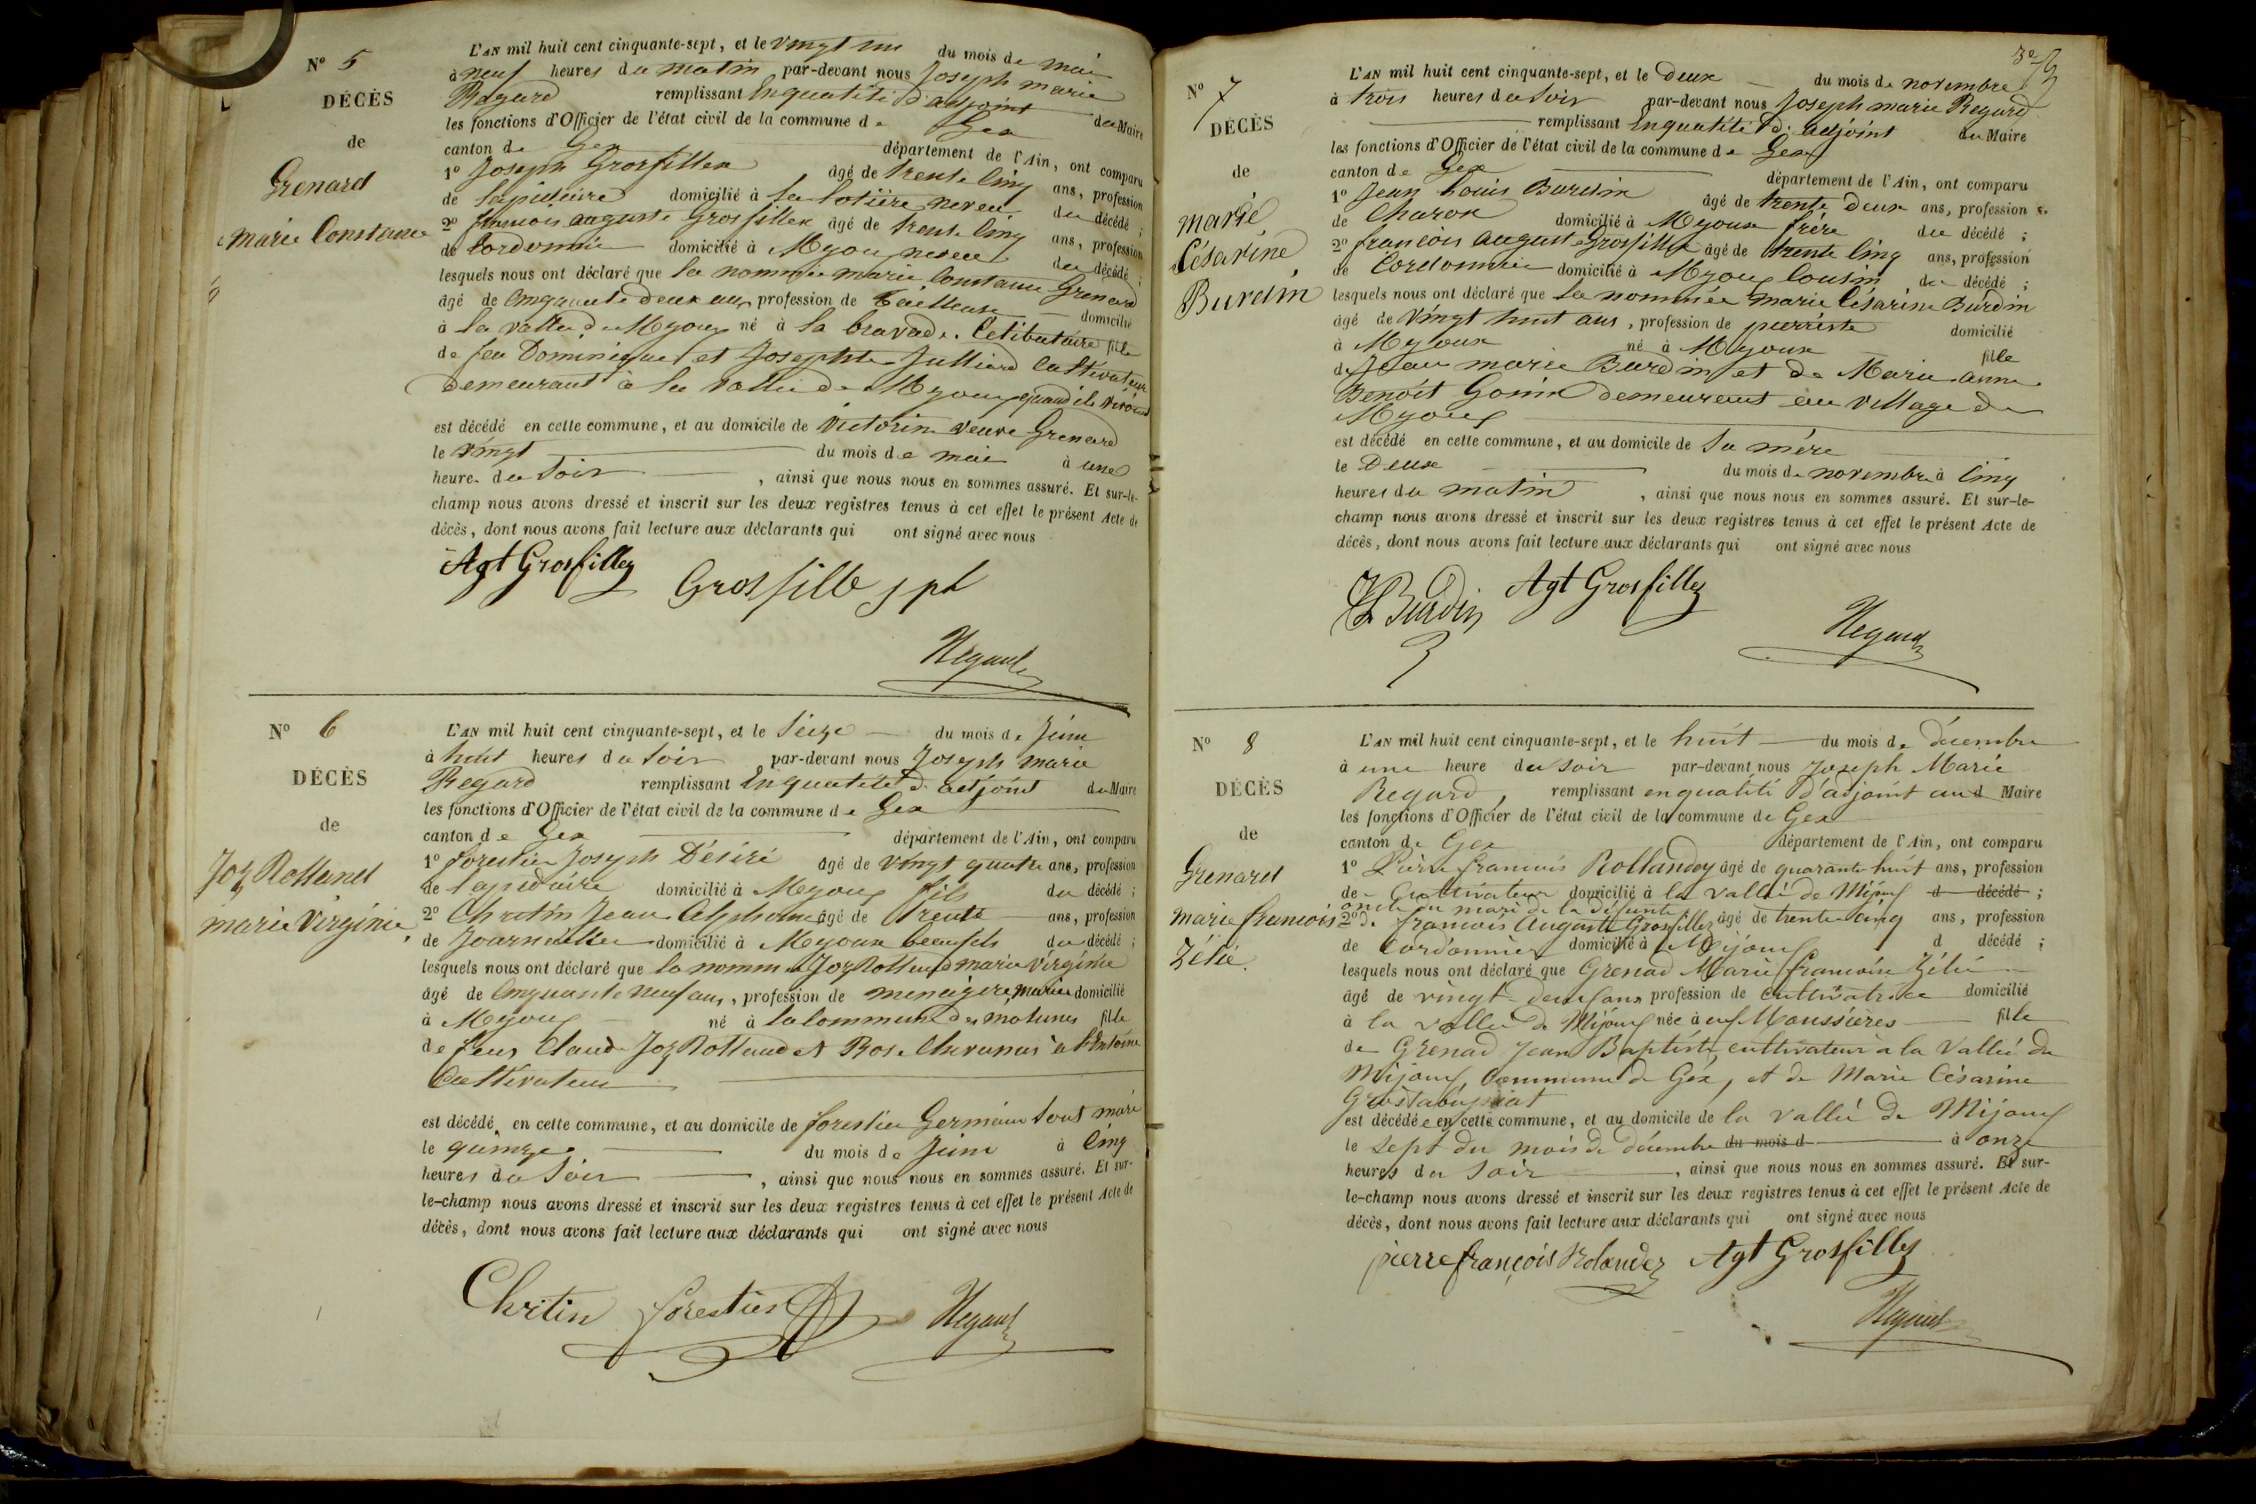 Nº 5
DÉCÈS
de
Grenard
marie Constance
L'AN mil huit cent cinquante-sept, et le vingt un du mois de mai
à neuf heures du matin par-devant nous Joseph marie
Regard remplissant Enqualité d'adjoint du Maire
les fonctions d'Officier de l'état civil de la commune de Gex
canton de Gex département de l'Ain, ont comparu
1º Joseph Grosfillex âgé de trente Cinq ans, profession
de lapidaire domicilié à la neveu du décédé ;
2º francois auguste Grosfillex âgé de trente Cinq ans, profession
de Cordonnier domicilié à Myoux neveu du décédé ;
lesquels nous ont déclaré que la nommée marie Constance Grenard
âgé de Cinquante deux ans, profession de Tailleuse domicilié
à la vallée de Myoux né à la bravade. Célibataire fille
de feu Dominique et Josephte Julliard Cultivateurs
demeurant à la vallée de Myoux quand ils vivoient
est décédé en cette commune, et au domicile de Victorine veuve Grenard
le vingt du mois de mai à une
heure du Soir , ainsi que nous nous en sommes assuré. Et sur-le-
champ nous avons dressé et inscrit sur les deux registres tenus à cet effet le présent Acte de
décès, dont nous avons fait lecture aux déclarants qui ont signé avec nous
Agt Grosfillex Grosfille jph
Regard
Nº 6
DÉCÈS
de
Joz Rolland
marie Virginie
L'AN mil huit cent cinquante-sept, et le Seize du mois de Juin
à huit heures du Soir par-devant nous Joseph marie
Regard remplissant Enqualité d'adjoint du Maire
les fonctions d'Officier de l'état civil de la commune de Gex
canton de Gex département de l'Ain, ont comparu
1º forestier Joseph Désiré âgé de vingt quatre ans, profession
de lapidaire domicilié à Myoux fils du décédé ;
2º Chritin Jean Alphonse âgé de trente ans, profession
de Journallier domicilié à Myoux beaufils du décédé ;
lesquels nous ont déclaré que la nommée Joz Rolland marie virginie
âgé de Cinquante neuf ans, profession de menagere, mariée domicilié
à Myoux né à la Commune des molunes fille
de feus Claude Joz Rolland et Rose à
Cultivateurs
est décédé en cette commune, et au domicile de forestier Germain Sont mari
le quinze du mois de Juin à Cinq
heures du Soir , ainsi que nous nous en sommes assuré. Et sur-
le-champ nous avons dressé et inscrit sur les deux registres tenus à cet effet le présent Acte de
décès, dont nous avons fait lecture aux déclarants qui ont signé avec nous
Chritin forestier Regard
Nº 7
DÉCÈS
de
marie
Césarine
Burdin
L'AN mil huit cent cinquante-sept, et le deux du mois de novembre
à trois heures du Soir par-devant nous Joseph marie Regard
remplissant Enqualité d'adjoint du Maire
les fonctions d'Officier de l'état civil de la commune de Gex
canton de Gex département de l'Ain, ont comparu
1º Jean Louis Burdin âgé de trente deux ans, profession
de Charon domicilié à Myoux frère du décédé ;
2º françois auguste Grosfillex âgé de trente Cinq ans, profession
de Cordonnier domicilié à Myoux Cousin du décédé ;
lesquels nous ont déclaré que la nommée marie Césarine Burdin
âgé de vingt huit ans, profession de pierriste domicilié
à Myoux né à Myoux fille
de Jean marie Burdin et de Marie anne
Benoit Gonin demeurant au village de
Myoux
est décédé en cette commune, et au domicile de Sa mère
le Deux du mois de novembre à Cinq
heures du matin , ainsi que nous nous en sommes assuré. Et sur-le-
champ nous avons dressé et inscrit sur les deux registres tenus à cet effet le présent Acte de
décès, dont nous avons fait lecture aux déclarants qui ont signé avec nous
Burdin Agt Grosfillex
Regard
Nº 8
DÉCÈS
de
Grenard
marie francois
Zélie
L'AN mil huit cent cinquante-sept, et le huit du mois de décembre
à une heure du soir par-devant nous Joseph Marie
Regard, remplissant enqualité d'adjoint au Maire
les fonctions d'Officier de l'état civil de la commune de Gex
canton de Gex département de l'Ain, ont comparu
1º Pierre francois Rollandez âgé de quarante huit ans, profession
de Cultivateur domicilié à la vallée de Mijoux d décédé ;
oncle du mari de la défunte
2º francois Auguste Grosfillez âgé de trente cinq ans, profession
de Cordonnier domicilié à Mijoux d décédé ;
lesquels nous ont déclaré que Grenad Marie francoise Zélie
âgé de vingt deux ans profession de cultivatrice domicilié
à la vallée de Mijoux née à Moussières fille
de Grenad Jean Baptiste, cultivateur à la Vallée de
Mijoux, Commune de Gex, et de Marie Césarine
est décédée en cette commune, et au domicile de la vallée de Mijoux
le sept du mois de décembre du mois d à onze
heures du soir , ainsi que nous nous en sommes assuré. Et sur-
le-champ nous avons dressé et inscrit sur les deux registres tenus à cet effet le présent Acte de
décès, dont nous avons fait lecture aux déclarants qui ont signé avec nous
pierre françois Rolandez Agt Grosfillex
Regard